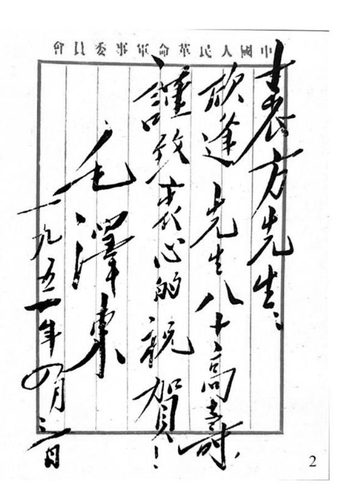 中國人民革命軍事委員會
表方先生:
欣逢 先生八十高壽,
謹致衷心的祝賀!
毛澤東
一九五一年四月二日
2